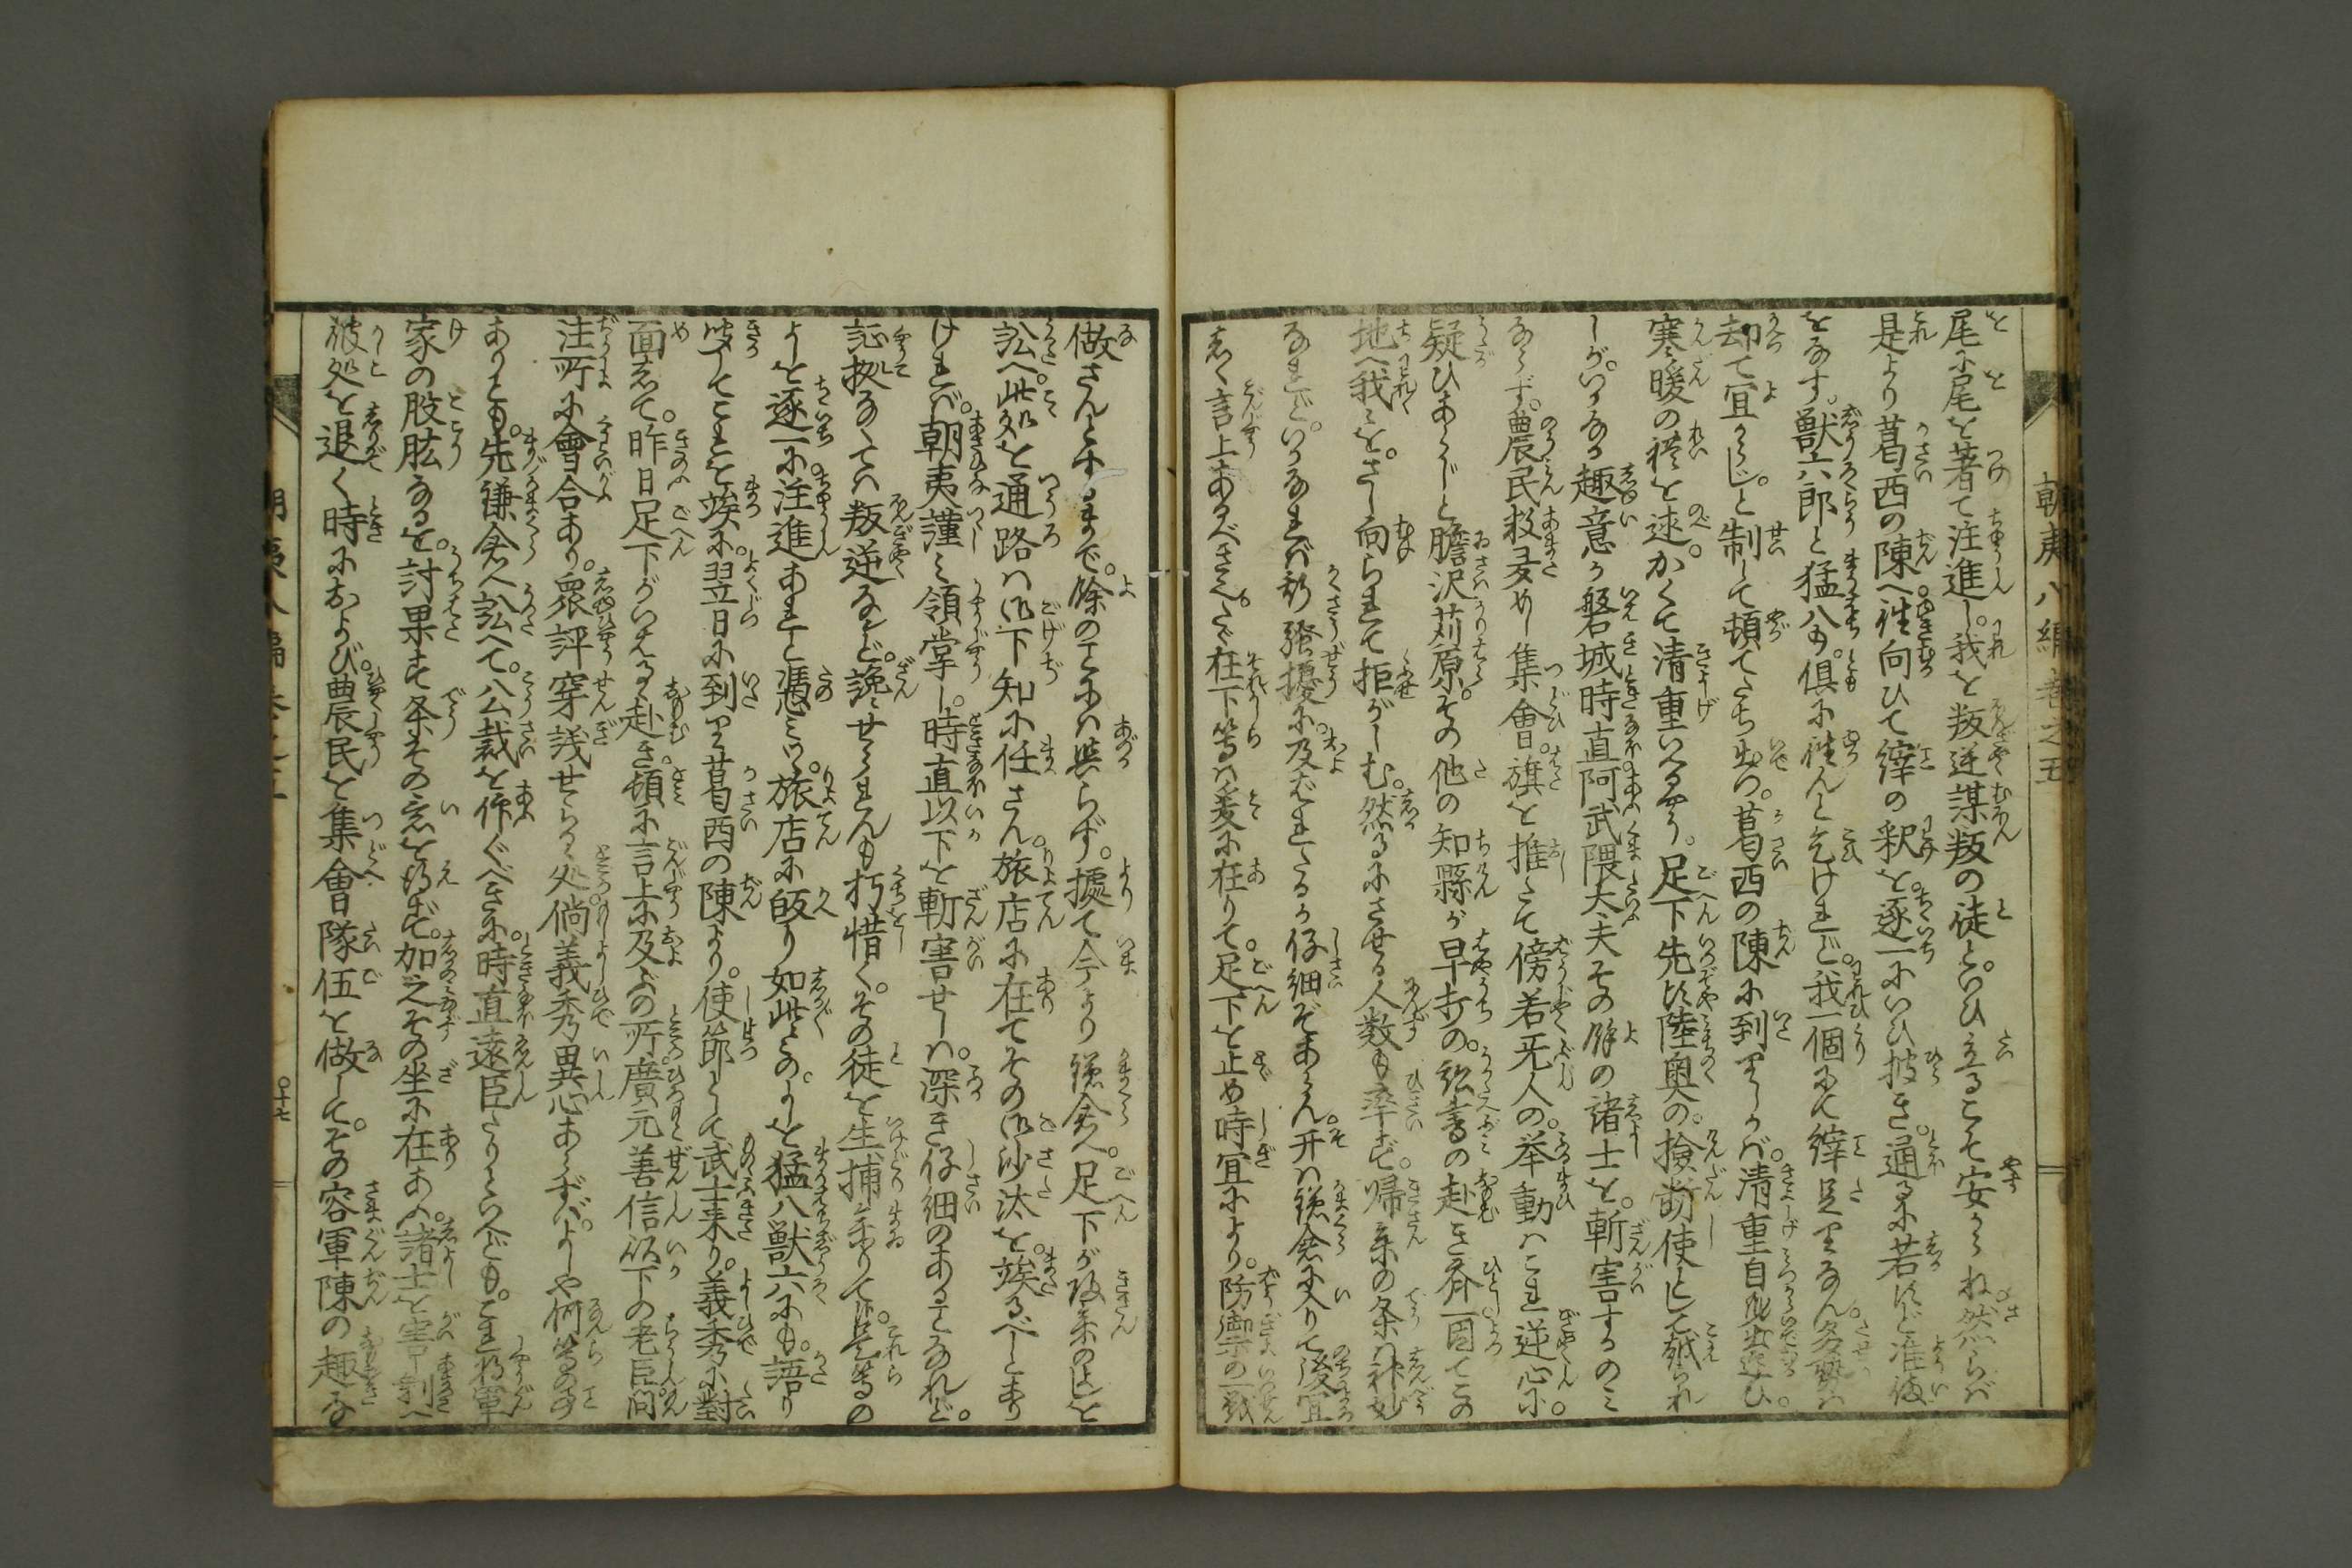 朝夷八編巻之五
尾に尾を著て注進し。我を叛逆謀叛の徒と。いひ立ること安からね。然らば
是より葛西の陳へ往向ひて縡の釈を。逐一にいひ披き。通るに若ずと准備
をなす。獣六郎と猛八も。倶に往んと乞けれど。我一個にて縡足りなん。多勢は
却て宜からじ。と制して頓てたち出つ。葛西の陳に到りしかば。清重自出迎ひ。
寒暖の禮を述。かくて清重いふやう。足下先に陸奥の。撿断使として越られ
しが。いかなる趣意か磐城時直阿武隈大夫その餘の諸士を。斬害するのみ
ならず。農民数多めし集會。旗を推たて傍若无人の。挙動はこれ逆心に。
疑ひあらじと膽沢苅原。その他の知縣が早打の。訟書の赴き斉一因てこの
地へ我々を。さし向られて拒がしむ。然るにさせる人数も率ず。帰参の条は神妙
なれど。いかなれば騒擾に。及ばれたるか仔細ぞあらん。开は鎌倉に入りて後宜
しく言上あるべきこと。たゞ在下等は爰に在りて。足下を止め時宜により。防禦の一戦
做さんとするまで。餘のことには與らず。據て今より鎌倉へ。足下が帰参のよしを
訟へ。此処を通路は御下知に任さん。旅店に在てその御沙汰を。竢るべしとあり
ければ。朝夷謹み領掌し。時直以下を斬害せしは。深き仔細のあることなれど。
証拠なくては叛逆など。讒せられんも朽惜く。その徒を生捕参りて。是等の
よしを逐一に注進あれと憑みつ。旅店に皈り如此々の。よしを猛八獣六にも。語り
聞してこれを竢に。翌日に到り葛西の陳より。使節として武士来り。義秀に對
面して。昨日足下がいへる赴き。頓に言上に及ぶの所。廣元善信以下の老臣。問
注所に會合あり。衆評穿議せらるゝ処。倘義秀異心あらずば。よしや何等の事
ありとも。先鎌倉へ訟へて。公裁を仰ぐべきに。時直遠臣たりといへども。これ將軍
家の股肱なるを。討果す条その意を得ず。加之その坐に在あふ。諸士を害し剰へ
彼処を退く時におよび。農民を集會隊伍を做して。その容軍陳の趣な
朝夷八編巻之五
〇十七